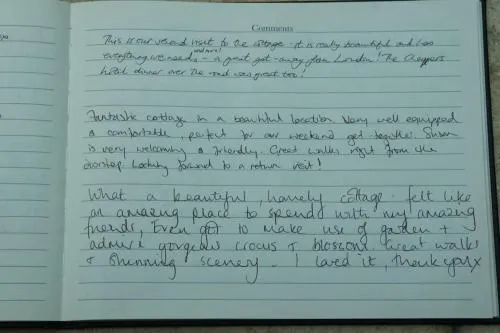 Comments
This is our second visit to the cottage - it is really beautiful and has
and more!
everything we needs - a great get-away from London! The
hotel dinner over the road was great too!
Fantastic cottage in a beautiful location. Very well equipped
& comfortable, perfect for our weekend get together. Susan
is very welcoming & friendly. Great walks right from the
doorstep. Looking forward to a return visit!
What a beautiful, homely cottage. felt like
an amazing place to spend with my amazing
friends, Even got to make use of garden +
admire gorgeous crocus & blossom. Great walks
& stunning scenery. I loved it, Thank you x